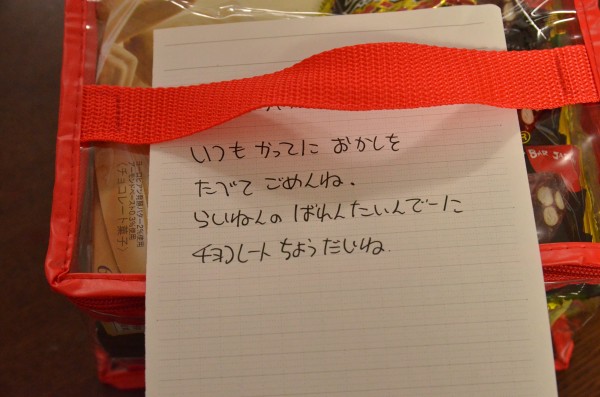 いつも かってに おかしを
たべて ごめんね.
らいねんの ばれんたいんでーに
チョコレート ちょうだいね.
(チョコレート菓子)
BAR